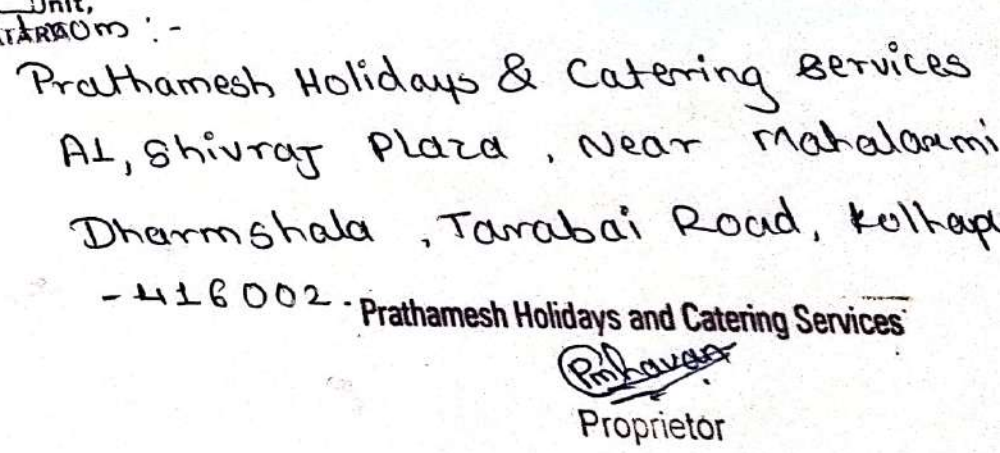 Unit,
From :-
Prathamesh Holidays & Catering Services
A1, Shivraj Plaza, Near Mahalaxmi
Dharmshala, Tarabai Road, Kolhap
-416002.
Prathamesh Holidays and Catering Services
Proprietor